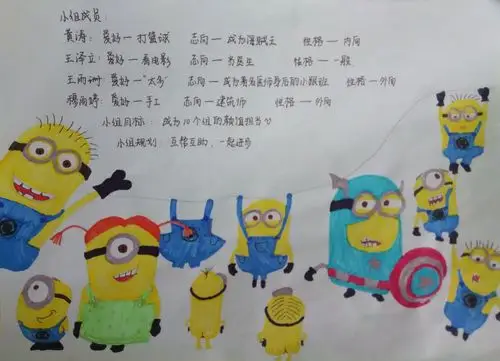 小组成员:
黄涛: 爱好一打篮球 志向一成为海贼王 性格一内向
王泽立: 爱好一看电影 志向一 性格一一般
王雨珊: 爱好一"太多" 志向一成为著名医师身后的小跟班 性格一外向
杨雨婷: 爱好一手工 志向一建筑师 性格一外向
小组目标: 成为10个组的颜值担当
小组规划: 互帮互助、一起进步